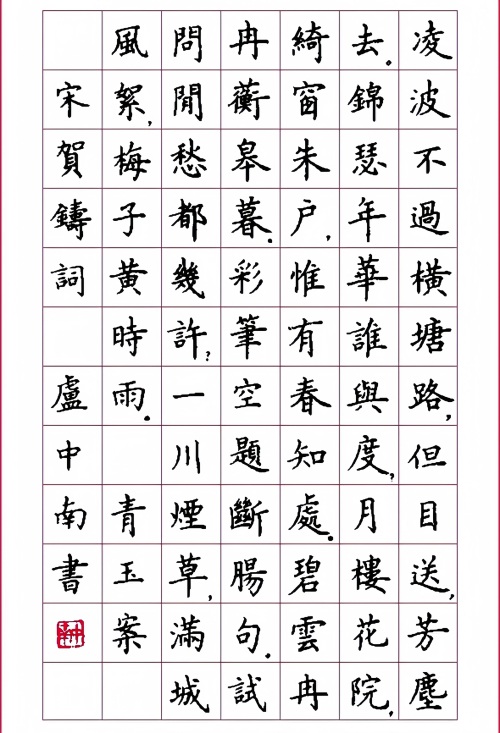 凌波不過橫塘路,但目送,芳塵
去.錦瑟年華誰與度,月樓花院,
綺窗朱户,惟有春知處.碧雲冉
冉蘅皋暮.彩筆空題斷腸句.試
問閒愁都幾許?一川煙草,滿城
風絮,梅子黃時雨. 青玉案
宋賀鑄詞 盧中南書